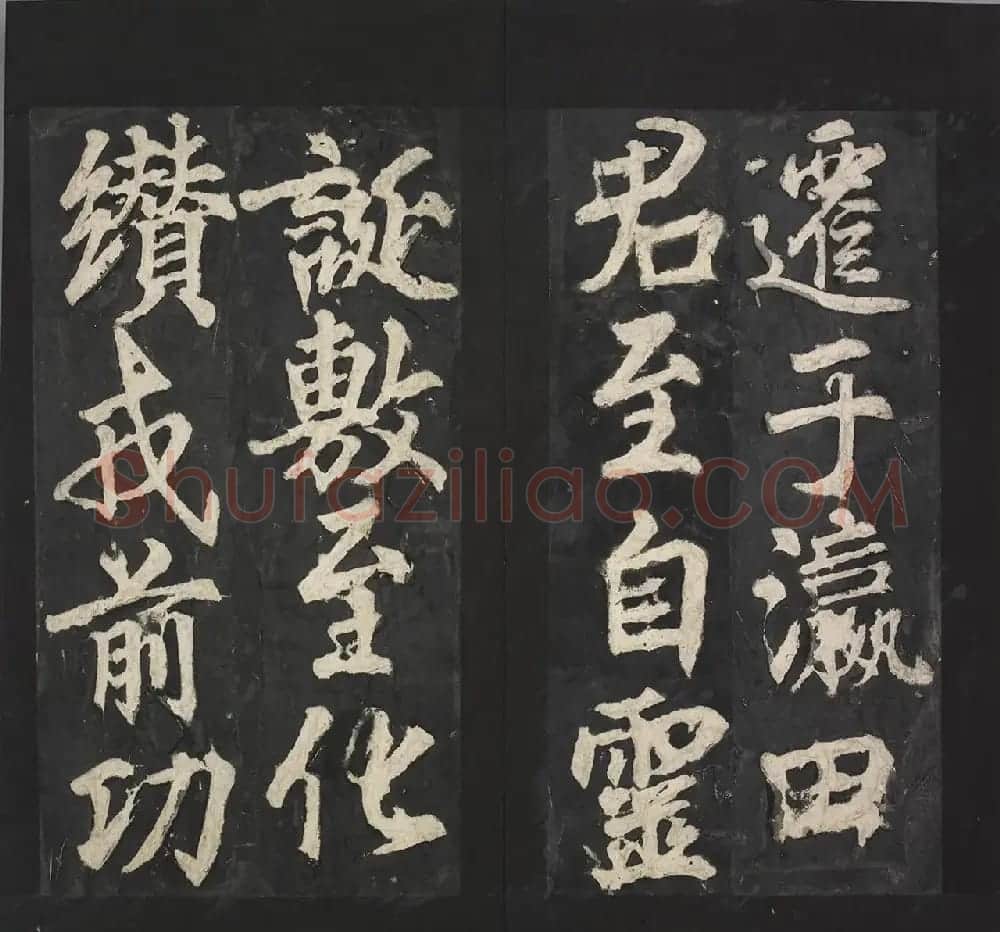 遷于瀛田
君至自靈
誕敷至化
纘戎前功
Shufaziliao.COM